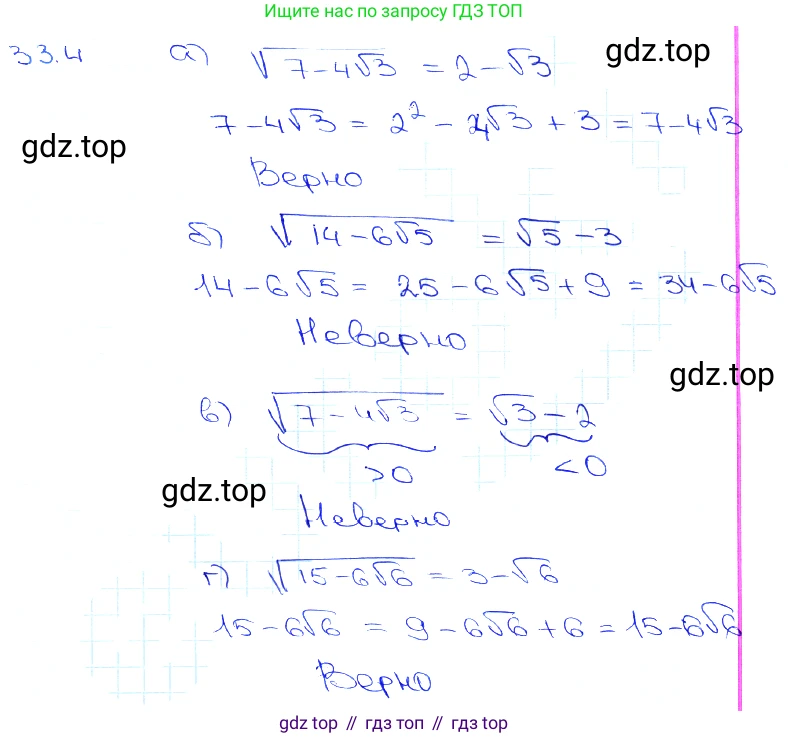 Ищите нас по запросу ГДЗ ТОП
33.4 а) √(7-4√3) = 2-√3
gdz.top
7-4√3 = 2² - 4√3 + 3 = 7-4√3
gdz.top
Верно
б) √(14-6√5) = √5-3
14-6√5 = 25-6√5+9 = 34-6√5
Неверно
gdz.top
в) √(7-4√3) = √3-2
>0 <0
gdz.top
Неверно
г) √(15-6√6) = 3-√6
15-6√6 = 9-6√6+6 = 15-6√6
Верно
gdz top // гдз топ // gdz top